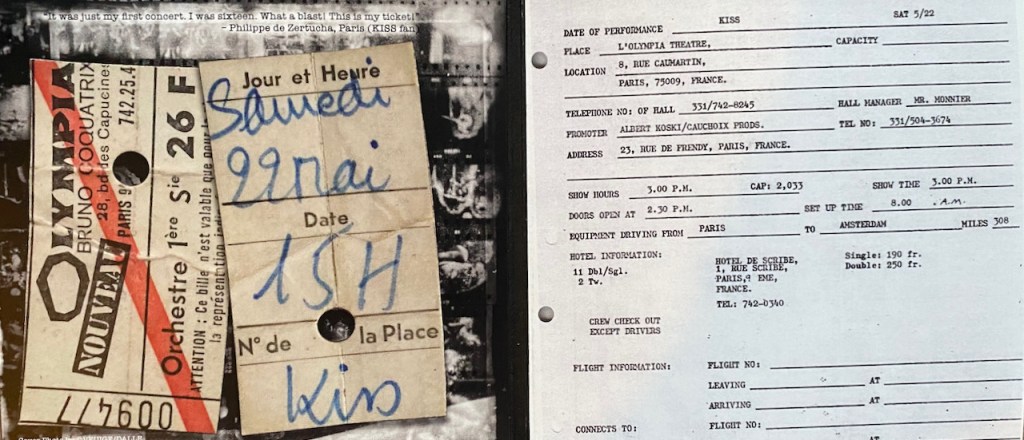 "It was just my first concert. I was sixteen. What a blast! This is my ticket!"
– Philippe de Zertucha, Paris (KISS fan)
OLYMPIA
BRUNO COQUATRIX
28, bd des Capucines
PARIS 9e
742.25.4
NOUVEAU
Orchestre 1ère Sie 26 F
ATTENTION : Ce billet n'est valable que pour
la représentation indi
009477
Jour et Heure
Samedi
22 Mai
Date
15 H
N° de la Place
Kiss
KISS SAT 5/22
DATE OF PERFORMANCE
PLACE L'OLYMPIA THEATRE, CAPACITY
LOCATION 8, RUE CAUMARTIN,
PARIS, 75009, FRANCE.
TELEPHONE NO: OF HALL 331/742-8245 HALL MANAGER MR. MONNIER
PROMOTER ALBERT KOSKI/CAUCHOIX PRODS. TEL NO: 331/504-3674
ADDRESS 23, RUE DE FRENDY, PARIS, FRANCE.
SHOW HOURS 3.00 P.M. CAP: 2,033 SHOW TIME 3.00 P.M.
DOORS OPEN AT 2.30 P.M. SET UP TIME 8.00 .A.M.
EQUIPMENT DRIVING FROM PARIS TO AMSTERDAM MILES 308
HOTEL INFORMATION: HOTEL DE SCRIBE, Single: 190 fr.
11 Dbl/Sgl. 1, RUE SCRIBE, Double: 250 fr.
2 Tw. PARIS,9 EME,
FRANCE.
TEL: 742-0340
CREW CHECK OUT
EXCEPT DRIVERS
FLIGHT INFORMATION: FLIGHT NO:
LEAVING AT
ARRIVING AT
CONNECTS TO: FLIGHT NO:
AT